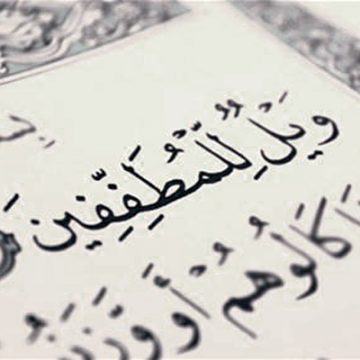 وَيْلٌ لِّلْمُطَفِّفِينَ
كَالُوهُمْ أَو وَّزَنُ